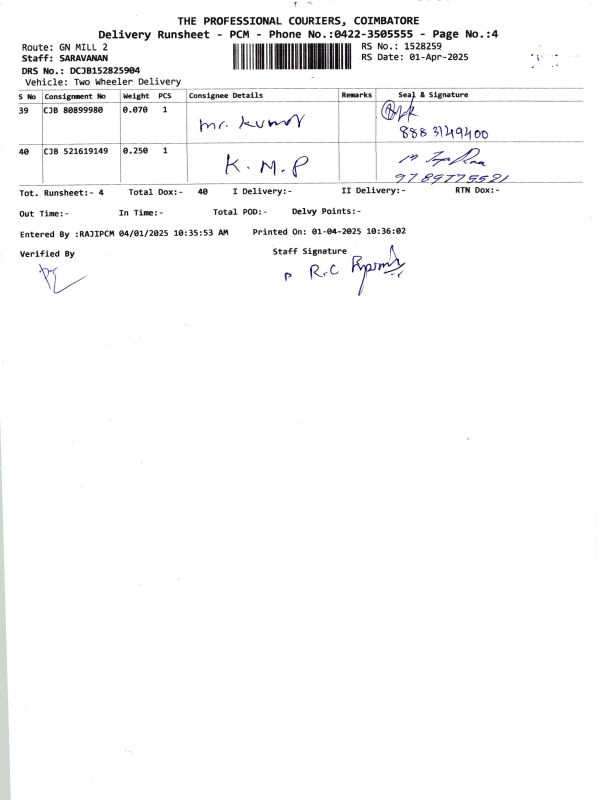 THE PROFESSIONAL COURIERS, COIMBATORE
Delivery Runsheet - PCM - Phone No.:0422-3505555 - Page No.:4
Route: GN MILL 2 RS No.: 1528259
Staff: SARAVANAN RS Date: 01-Apr-2025
DRS No.: DCJB152825904
Vehicle: Two Wheeler Delivery
S No Consignment No Weight PCS Consignee Details Remarks Seal & Signature
39 CJB 80899980 0.070 1 Mr. Kumar
8883149400
40 CJB 521619149 0.250 1 K. M. P
9789775521
Tot. Runsheet:- 4 Total Dox:- 40 I Delivery:- II Delivery:- RTN Dox:-
Out Time:- In Time:- Total POD:- Delvy Points:-
Entered By :RAJIPCM 04/01/2025 10:35:53 AM Printed On: 01-04-2025 10:36:02
Verified By Staff Signature
R.C